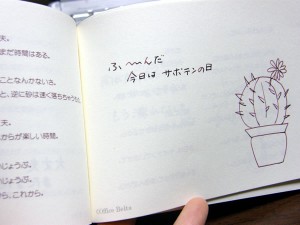 夫。
まだ時間はある。
ことなんかないさ。
と、逆に砂は速く落ちちゃうの
天。
からが楽しい時間。
じょうぶ。
じょうぶ。
ら、これから。
ふ〜〜んだ
今日は サボテンの日
Office Belta